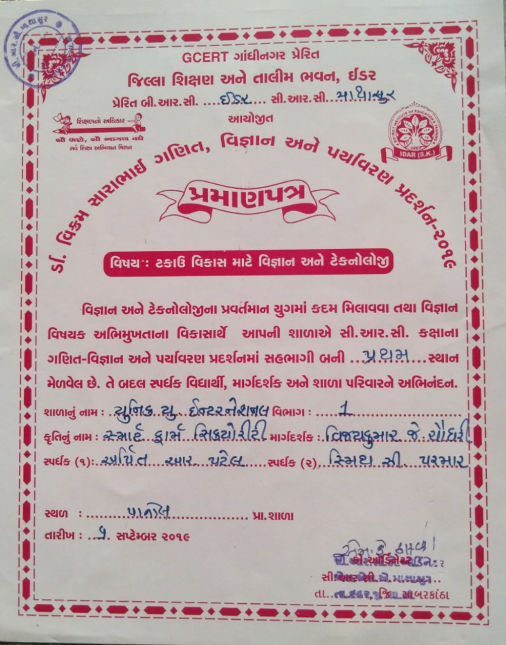 GCERT ગાંધીનગર પ્રેરિત
જિલ્લા શિક્ષણ અને તાલીમ ભવન, ઈડર
પ્રેરિત બી.આર.સી. ....ઈડર.... સી.આર.સી. માથાસુર
આયોજીત
શિક્ષણનો અધિકાર
સર્વ શિક્ષા અભિયાન મિશન
IDAR (S.K.)
ડૉ. વિક્રમ સારાભાઈ ગણિત, વિજ્ઞાન અને પર્યાવરણ પ્રદર્શન-૨૦૧૯
પ્રમાણપત્ર
વિષય : ટકાઉ વિકાસ માટે વિજ્ઞાન અને ટેકનોલોજી
વિજ્ઞાન અને ટેકનોલોજીના પ્રવર્તમાન યુગમાં કદમ મિલાવવા તથા વિજ્ઞાન
વિષયક અભિમુખતાના વિકાસાર્થે આપની શાળાએ સી.આર.સી. કક્ષાના
ગણિત-વિજ્ઞાન અને પર્યાવરણ પ્રદર્શનમાં સહભાગી બની ...પ્રથમ... સ્થાન
મેળવેલ છે. તે બદલ સ્પર્ધક વિદ્યાર્થી, માર્ગદર્શક અને શાળા પરિવારને અભિનંદન.
શાળાનું નામ : યુનિક યુ ઈન્ટરનેશનલ વિભાગ : 1
કૃતિનું નામ : સ્માર્ટ ફાર્મ સિક્યોરીટી માર્ગદર્શક : વિજયકુમાર જે. ચૌધરી
સ્પર્ધક (૧): અર્ચિત આર પટેલ સ્પર્ધક (૨) સ્મિથ સી. પરમાર
સ્થળ : પાનોલ પ્રા.શાળા
તારીખ : ..૭. સપ્ટેમ્બર ૨૦૧૯